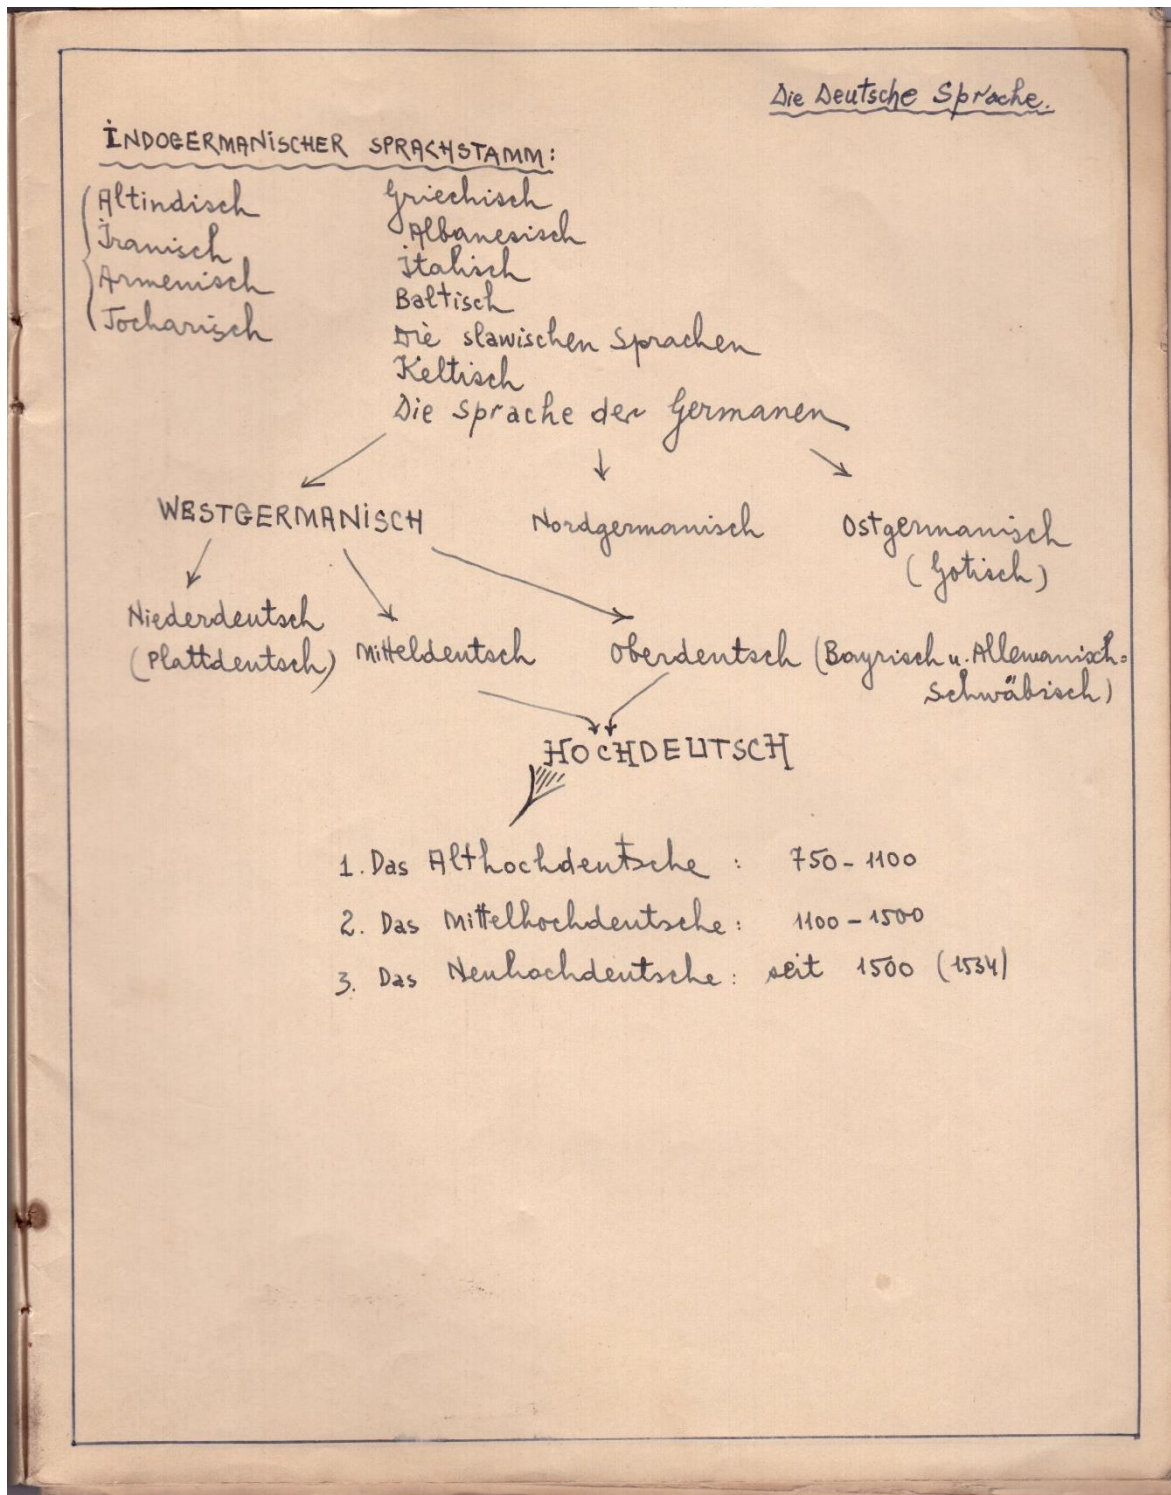 Die Deutsche Sprache.
İNDOGERMANİSCHER SPRACHSTAMM:
Altindisch
İranisch
Armenisch
Tocharisch
Griechisch
Albanesisch
İtalisch
Baltisch
Die slawischen Sprachen
Keltisch
Die Sprache der Germanen
WESTGERMANİSCH
Nordgermanisch
Ostgermanisch
(Gotisch)
Niederdeutsch
(Plattdeutsch)
Mitteldeutsch
Oberdeutsch (Bayrisch u. Allemanisch=
Schwäbisch)
HOCHDEUTSCH
1. Das Althochdeutsche : 750-1100
2. Das Mittelhochdeutsche : 1100-1500
3. Das Neuhochdeutsche : seit 1500 (1534)